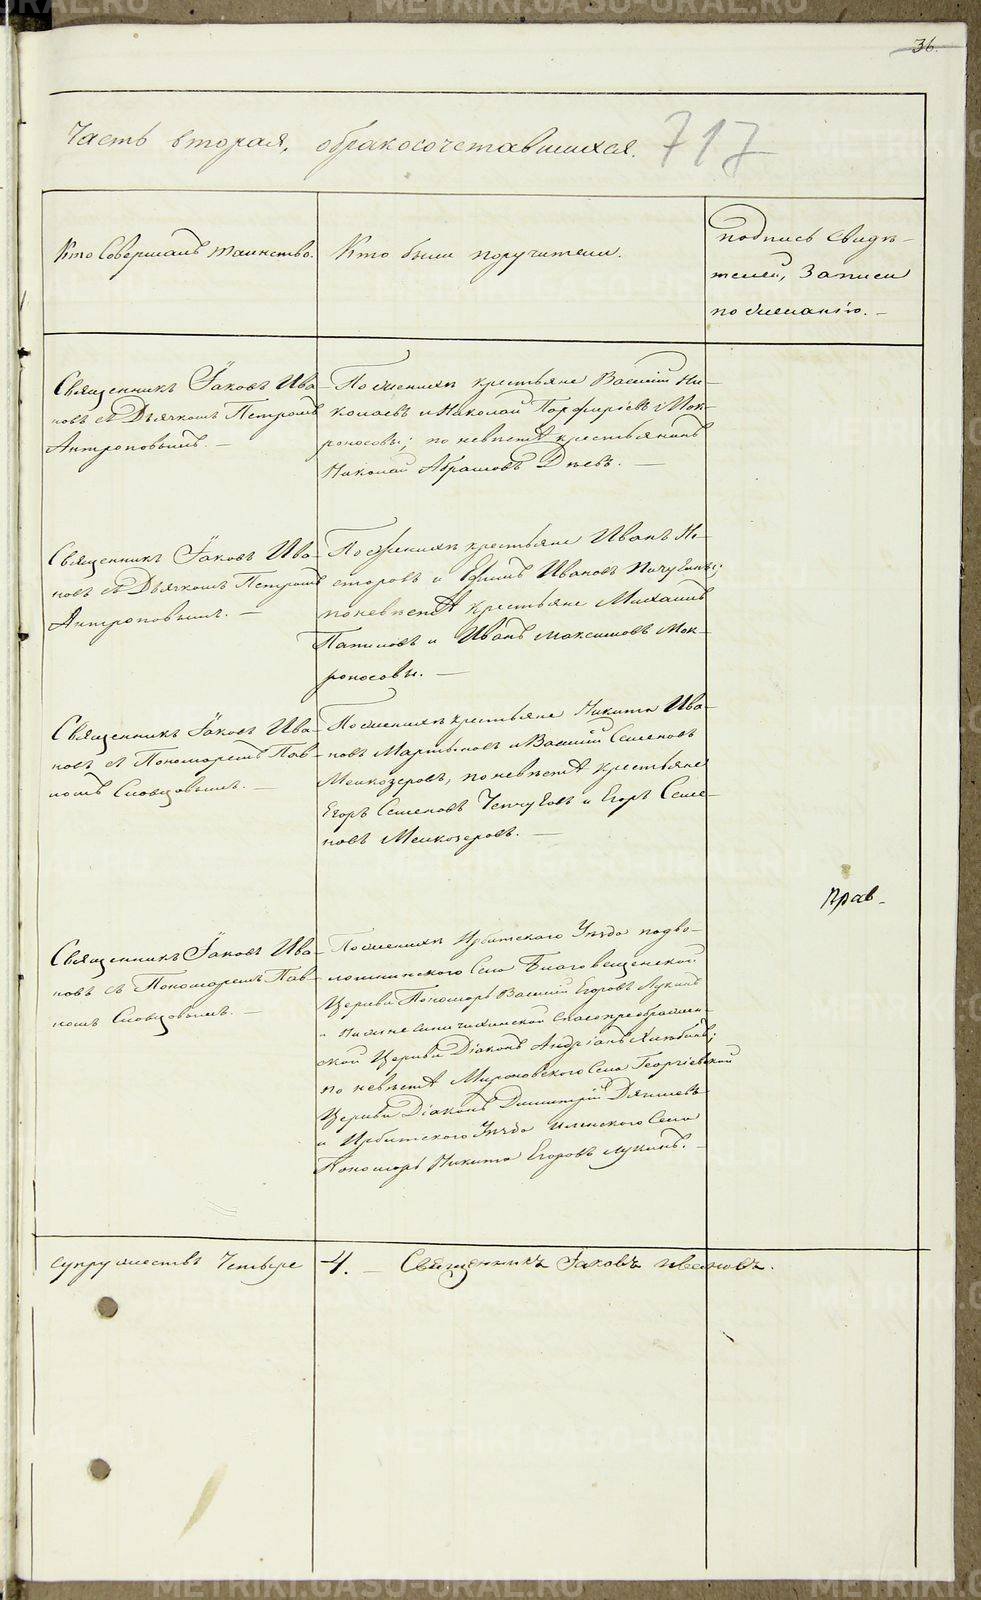 36.
Часть вторая, обракосочетавшихся.
717
Кто Совершалъ таинство.
Кто были поручители.
подпись свидѣ-
телей, Записи
по желанію. -
Священникъ Іаковъ Ива-
новъ съ Дьячкомъ Петромъ
Антроповымъ. -
По женихѣ крестьяне Василій Ни-
колаевъ и Николай Порфирьевъ Мок-
роносовы; по невѣстѣ крестьянинъ
Николай Абрамовъ Дѣевъ. -
Священникъ Іаковъ Ива-
новъ съ Дьячкомъ Петромъ
Антроповымъ. -
По женихѣ крестьяне Иванъ Не-
стеровъ и Ефимъ Ивановъ Пичугины;
по невѣстѣ крестьяне Михаилъ
и Иванъ Максимовъ Мок-
роносовы. -
Священникъ Іаковъ Ива-
новъ съ Пономаремъ Пав-
ломъ Словцовымъ. -
По женихѣ крестьяне Никита Ива-
новъ Мартыновъ и Василій Семеновъ
Мелкозеровъ, по невѣстѣ крестьяне
Егоръ Семеновъ Чепчуговъ и Егоръ Семе-
новъ Мелкозеровъ. -
Прав-
Священникъ Іаковъ Ива-
новъ съ Пономаремъ Пав-
ломъ Словцовымъ. -
По женихѣ Ирбитскаго Уѣзда подво-
лошинского Села Благовещенской
Церкви Пономарь Василій Егоровъ Лукинъ
и Нижнесиничихинской Спасопреображен-
ской Церкви Діаконъ Андріанъ Хлюбинъ;
по невѣстѣ Мироновского Села Георгіевской
Церкви Діаконъ Димитрій
и Ирбитскаго Уѣзда Села
Пономарь Никита Егоровъ Лукинъ. -
супружествъ Четыре
4. - Священникъ Іаковъ Ивановъ.
METRIKI.GASO-URAL.RU